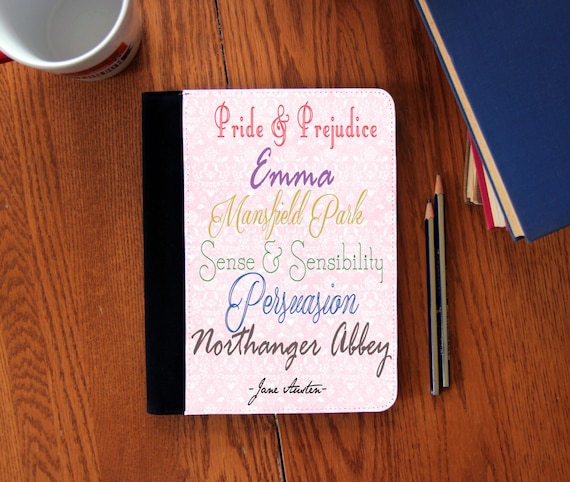 Pride & Prejudice
Emma
Mansfield Park
Sense & Sensibility
Persuasion
Northanger Abbey
-Jane Austen-